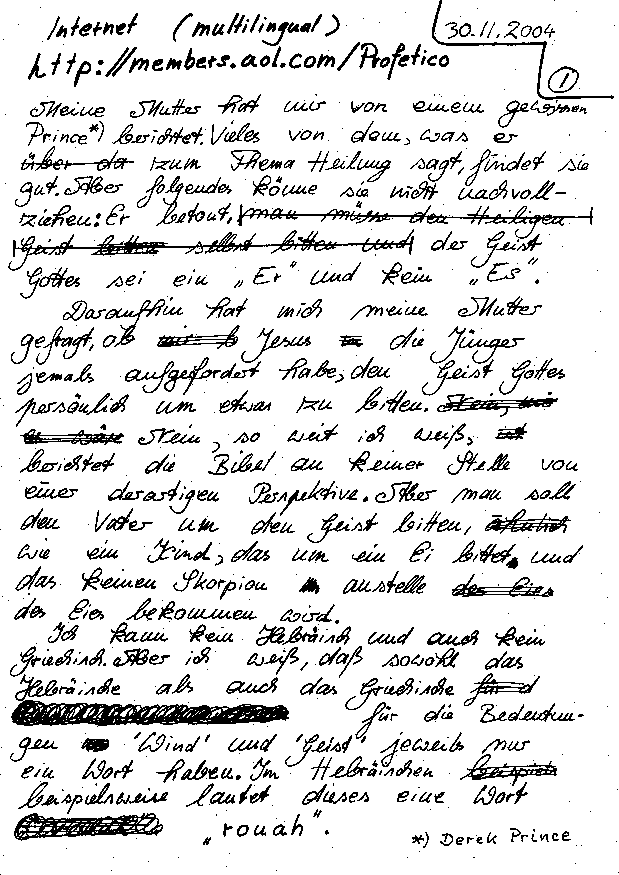 Internet (multilingual)
30.11.2004
http://members.aol.com/Profetico
1
Meine Mutter hat mir von einem gewissen
Prince*) berichtet. Vieles von dem, was er
über da zum Thema Heilung sagt, findet sie
gut. Aber folgendes könne sie nicht nachvoll-
ziehen: Er betont, man müsse den Heiligen
Geist bitten selbst bitten und der Geist
Gottes sei ein „Er" und kein „Es".
Daraufhin hat mich meine Mutter
gefragt, ob Jesus die Jünger
jemals aufgefordert habe, den Geist Gottes
persönlich um etwas zu bitten. Nein,
Nein, so weit ich weiß,
berichtet die Bibel an keiner Stelle von
einer derartigen Perspektive. Aber man soll
den Vater um den Geist bitten, ähnlich
wie ein Kind, das um ein Ei bittet und
das keinen Skorpion anstelle des Eies
des Eies bekommen wird.
Ich kann kein Hebräisch und auch kein
Griechisch. Aber ich weiß, daß sowohl das
Hebräische als auch das Griechische für d
für die Bedeutun-
gen 'Wind' und 'Geist' jeweils nur
ein Wort haben. Im Hebräischen beispiels
beispielsweise lautet dieses eine Wort
„rouah".
*) Derek Prince